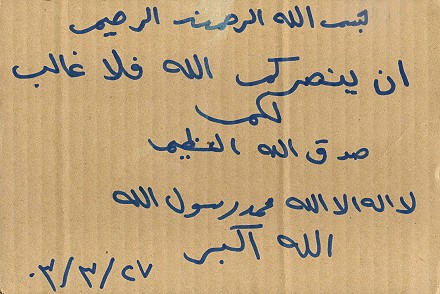 بسم الله الرحمن الرحيم
ان ينصركم الله فلا غالب
لكم
صدق الله العظيم
لا اله الا الله محمد رسول الله
الله اكبر
٠٣/٣/٢٧